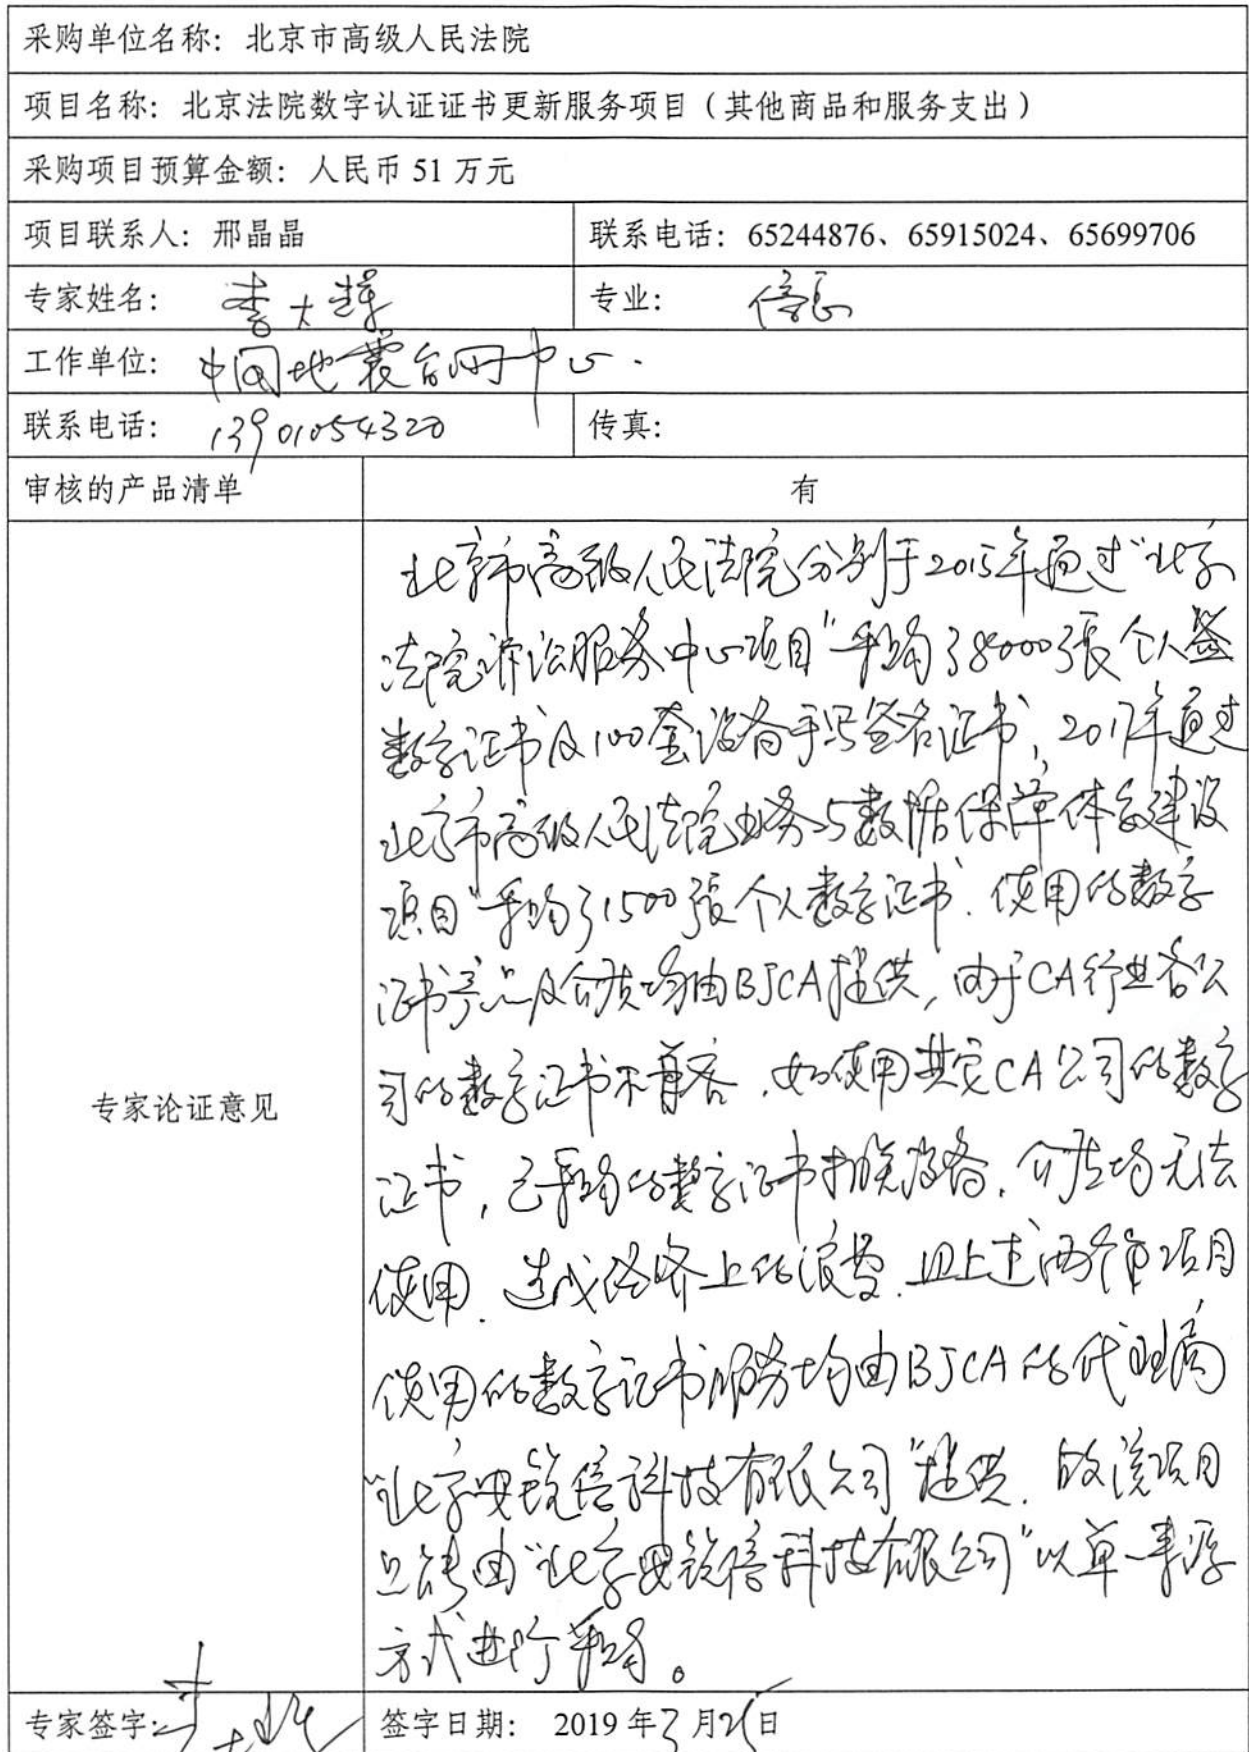 采购单位名称：北京市高级人民法院
项目名称：北京法院数字认证证书更新服务项目（其他商品和服务支出）
采购项目预算金额：人民币 51 万元
项目联系人：邢晶晶 联系电话：65244876、65915024、65699706
专家姓名：李大辉 专业：信息
工作单位：中国地震台网中心.
联系电话：13901054320 传真：
审核的产品清单 有
专家论证意见
北京市高级人民法院分别于2015年通过"北京
法院诉讼服务中心项目"采购了8000张个人签
数字证书及100套设备手写签名证书，2017年通过
北京市高级人民法院业务与数据保障体系建设
项目"采购了1500张个人数字证书.使用的数字
证书产品及介质均由BJCA提供，由于CA行业各公
司的数字证书不兼容，如使用其它CA公司的数字
证书，已采购的数字证书相关设备、介质均无法
使用.造成经济上的浪费.且上述两个项目
使用的数字证书服务均由BJCA的代理商
"北京安锐信科技有限公司"提供.故该项目
只能由"北京安锐信科技有限公司"以单一来源
方式进行采购。
专家签字：李大辉 签字日期： 2019 年3月25日